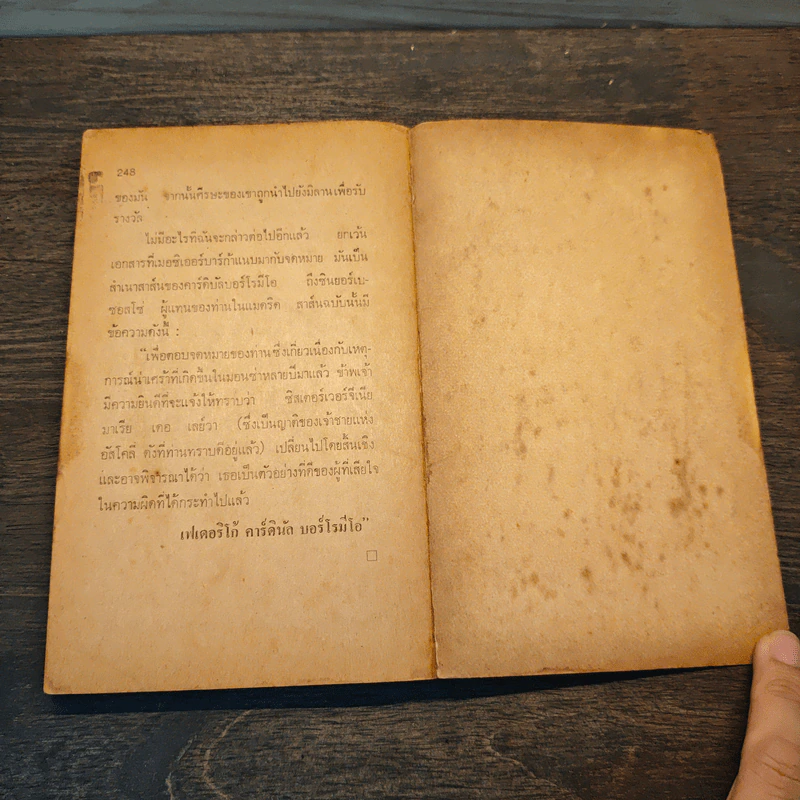 248
ของมัน จากนั้นศีรษะของเขาถูกนำไปยังมิลานเพื่อรับ
รางวัล
ไม่มีอะไรที่ฉันจะกล่าวต่อไปอีกแล้ว ยกเว้น
เอกสารที่เมอซิเออร์บาร์ก้าแนบมากับจดหมาย มันเป็น
สำเนาสาส์นของคาร์ดินัลบอร์โรมีโอ ถึงซินยอร์เบ-
ซอสโซ่ ผู้แทนของท่านในแมดริด สาส์นฉบับนั้นมี
ข้อความดังนี้ :
"เพื่อตอบจดหมายของท่านซึ่งเกี่ยวเนื่องกับเหตุ-
การณ์น่าเศร้าที่เกิดขึ้นในมอนซ่าหลายปีมาแล้ว ข้าพเจ้า
มีความยินดีที่จะแจ้งให้ทราบว่า ซิสเตอร์เวอร์จีเนีย
มาเรีย เดอ เลย์วา (ซึ่งเป็นญาติของเจ้าชายแห่ง
อัสโคลี ดังที่ท่านทราบดีอยู่แล้ว) เปลี่ยนไปโดยสิ้นเชิง
และอาจพิจารณาได้ว่า เธอเป็นตัวอย่างที่ดีของผู้ที่เสียใจ
ในความผิดที่ได้กระทำไปแล้ว
เฟเดอริโก้ คาร์ดินัล บอร์โรมีโอ"